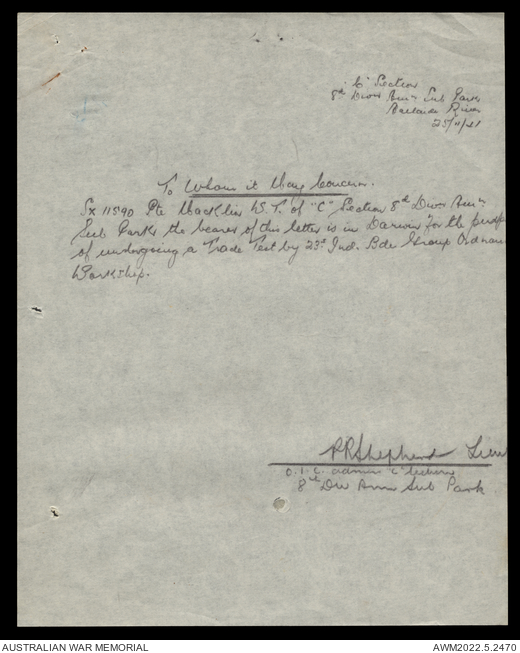 "C" Section
8th Divn Amn Sub Park
Adelaide River
25/11/41
To Whom it May Concern.
SX 11590 Pte Macklin W.T. of "C" Section 8th Divn Amn
Sub Park the bearer of this letter is in Darwin for the purpo
of undergoing a Trade Test by 23rd Ind. Bde Group Ordnan
Workship.
RRShepherd Lieu
O.I.C. admin "C" Section
8th Div Amn Sub Park
AUSTRALIAN WAR MEMORIAL
AWM2022.5.2470